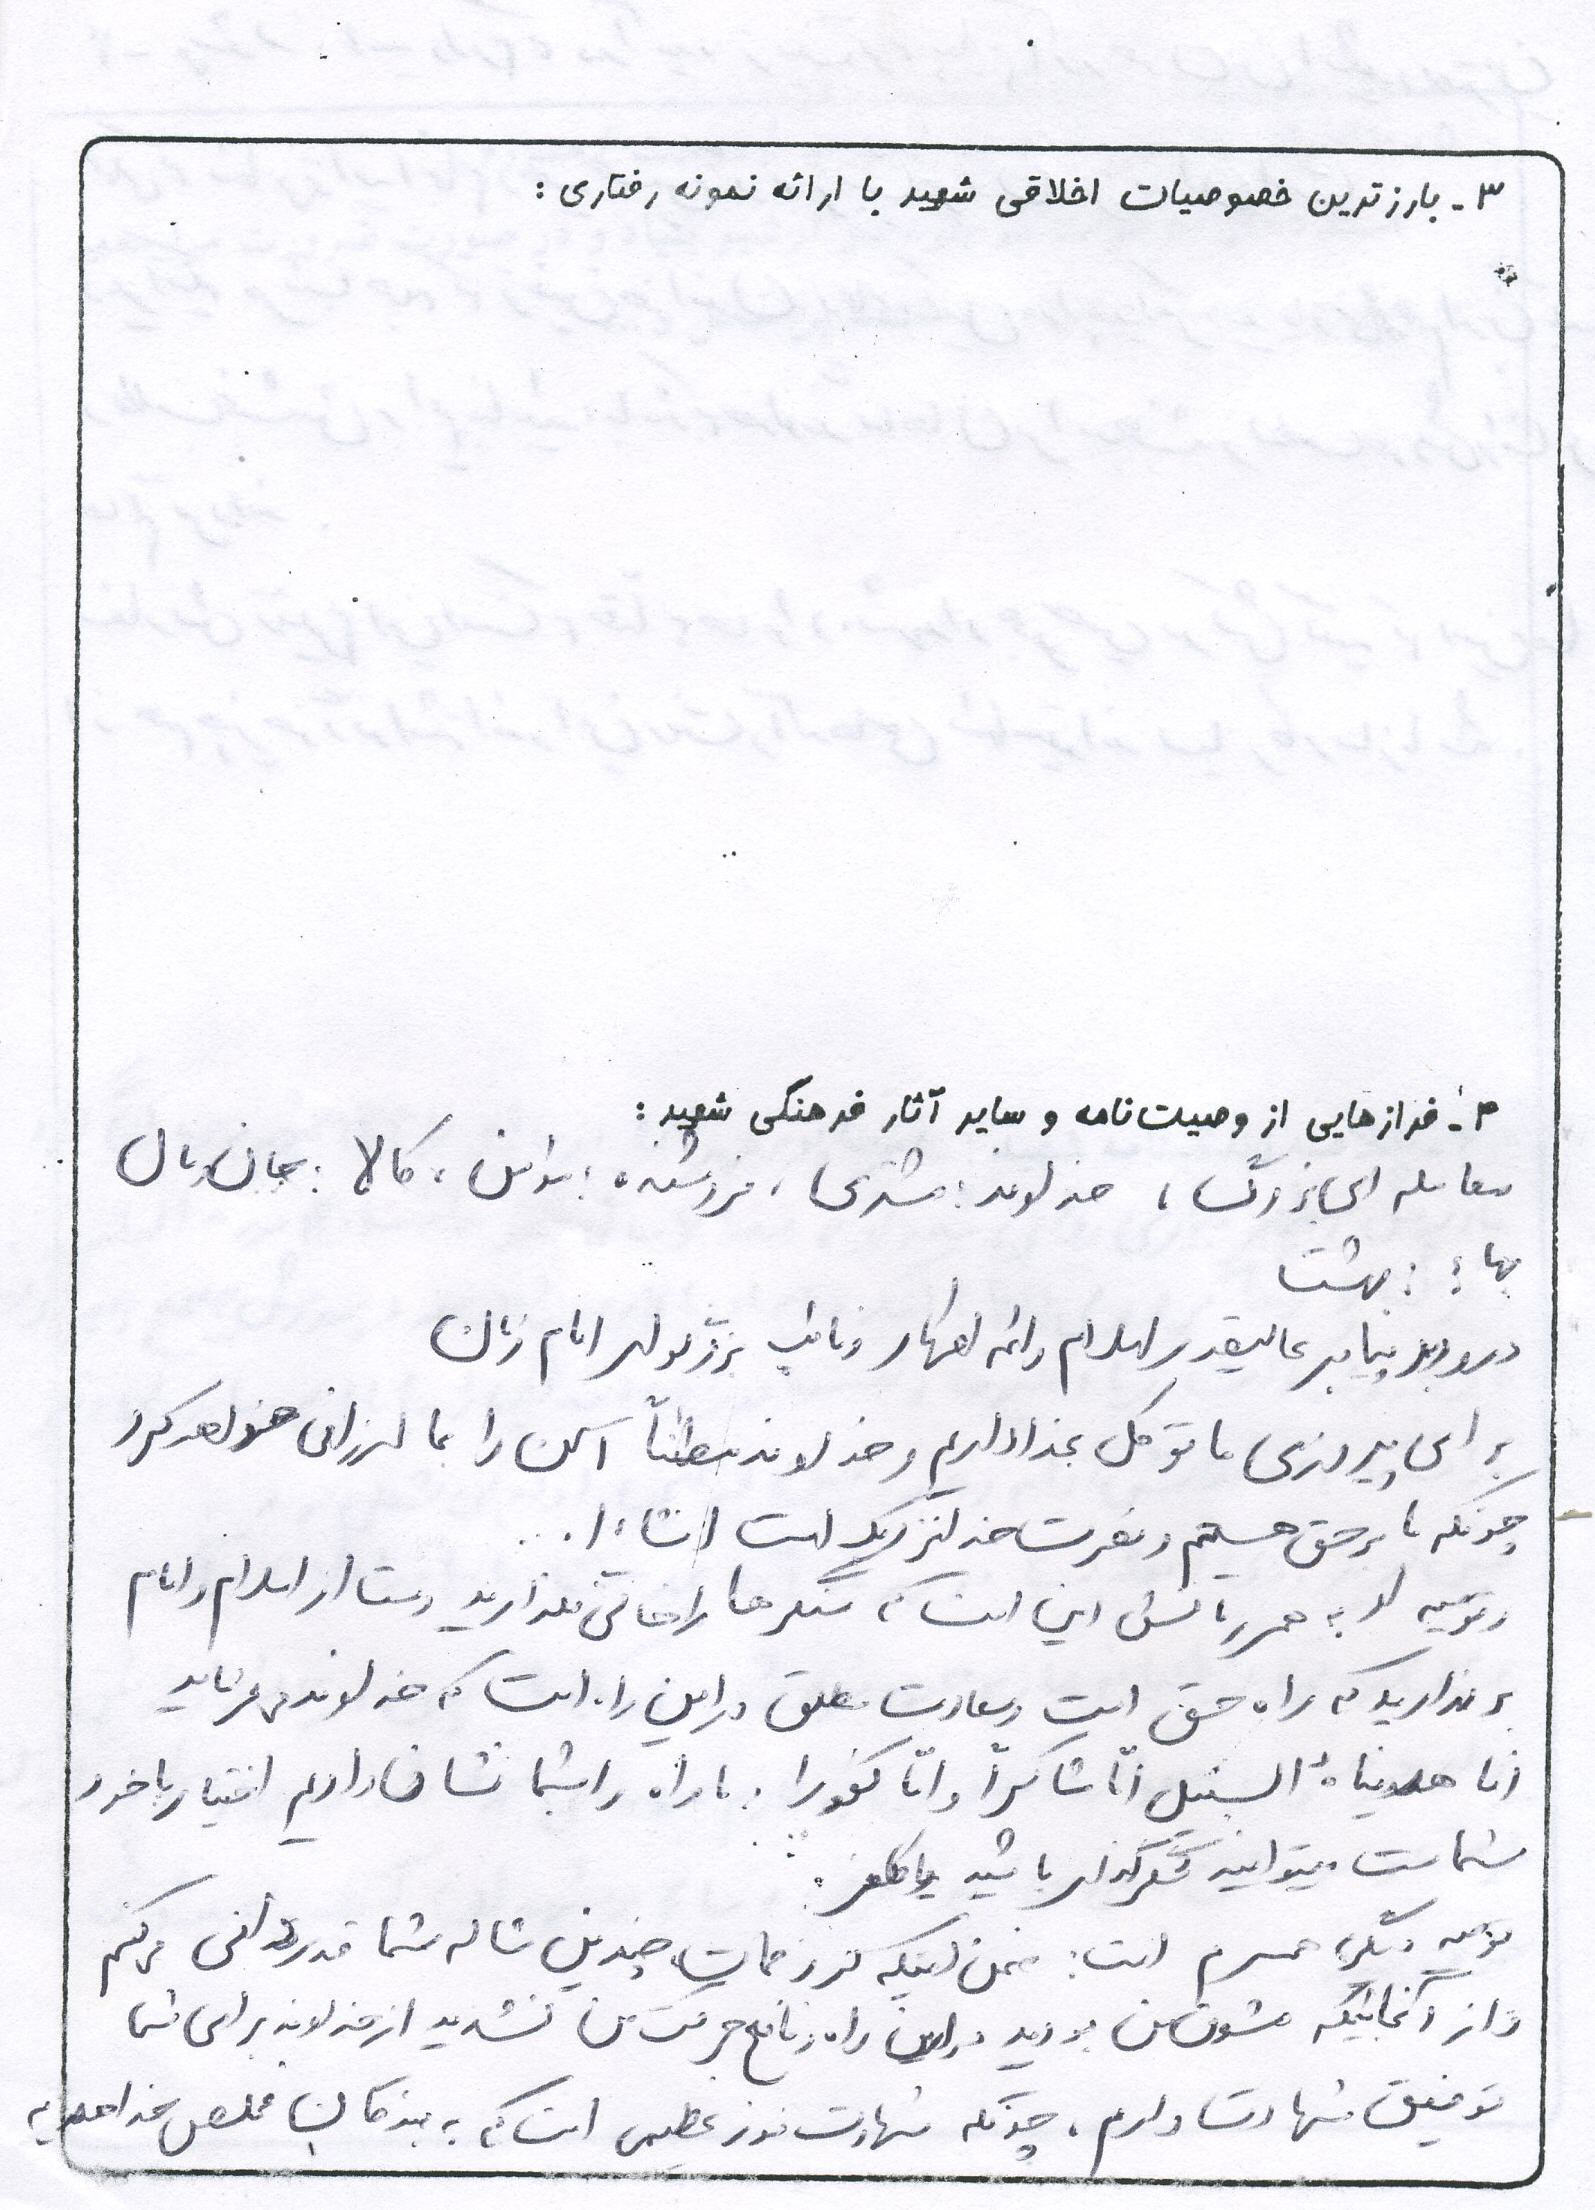 ۳ـ بارزترین خصوصیات اخلاقی شهید با ارائه نمونه رفتاری :
۴ـ فرازهایی از وصیت‌نامه و سایر آثار فرهنگی شهید :
معامله ای بزرگ ، خداوند : مشتری ، فروشنده : مؤمن ، کالا : جان و مال
بهاء : بهشت
درود بر پیامبر عالیقدر اسلام و ائمه اطهار و نائب بزرگوار امام زمان
برای پیروزی ما توکل بخدا داریم و خداوند مطمئناً آن را بما ارزانی خواهد کرد
چونکه ما بر حق هستیم و نصرت خدا نزدیک است انشاءا...
و توصیه او به همرزمانش این است که سنگرها را خالی نگذارید دست از اسلام و امام
بر ندارید که راه حق است و سعادت مطلق در این راه است که خداوند می فرماید
انا هدیناه السبیل امّا شاکراً و امّا کفورا : ما راه را بشما نشان دادیم اختیار با خود
شماست میتوانید شکرگذار باشید یا کافر .
توصیه دیگر همسرم است : ضمن اینکه از زحمات چندین ساله شما قدردانی می کنم
و از آنجائیکه مشوق من بودید در این راه و مانع حرکت من نشدید از خداوند برای شما
توفیق شهادت دارم ، چونکه شهادت فوز عظیمی است که به بندگان مخلص خدا هدیه